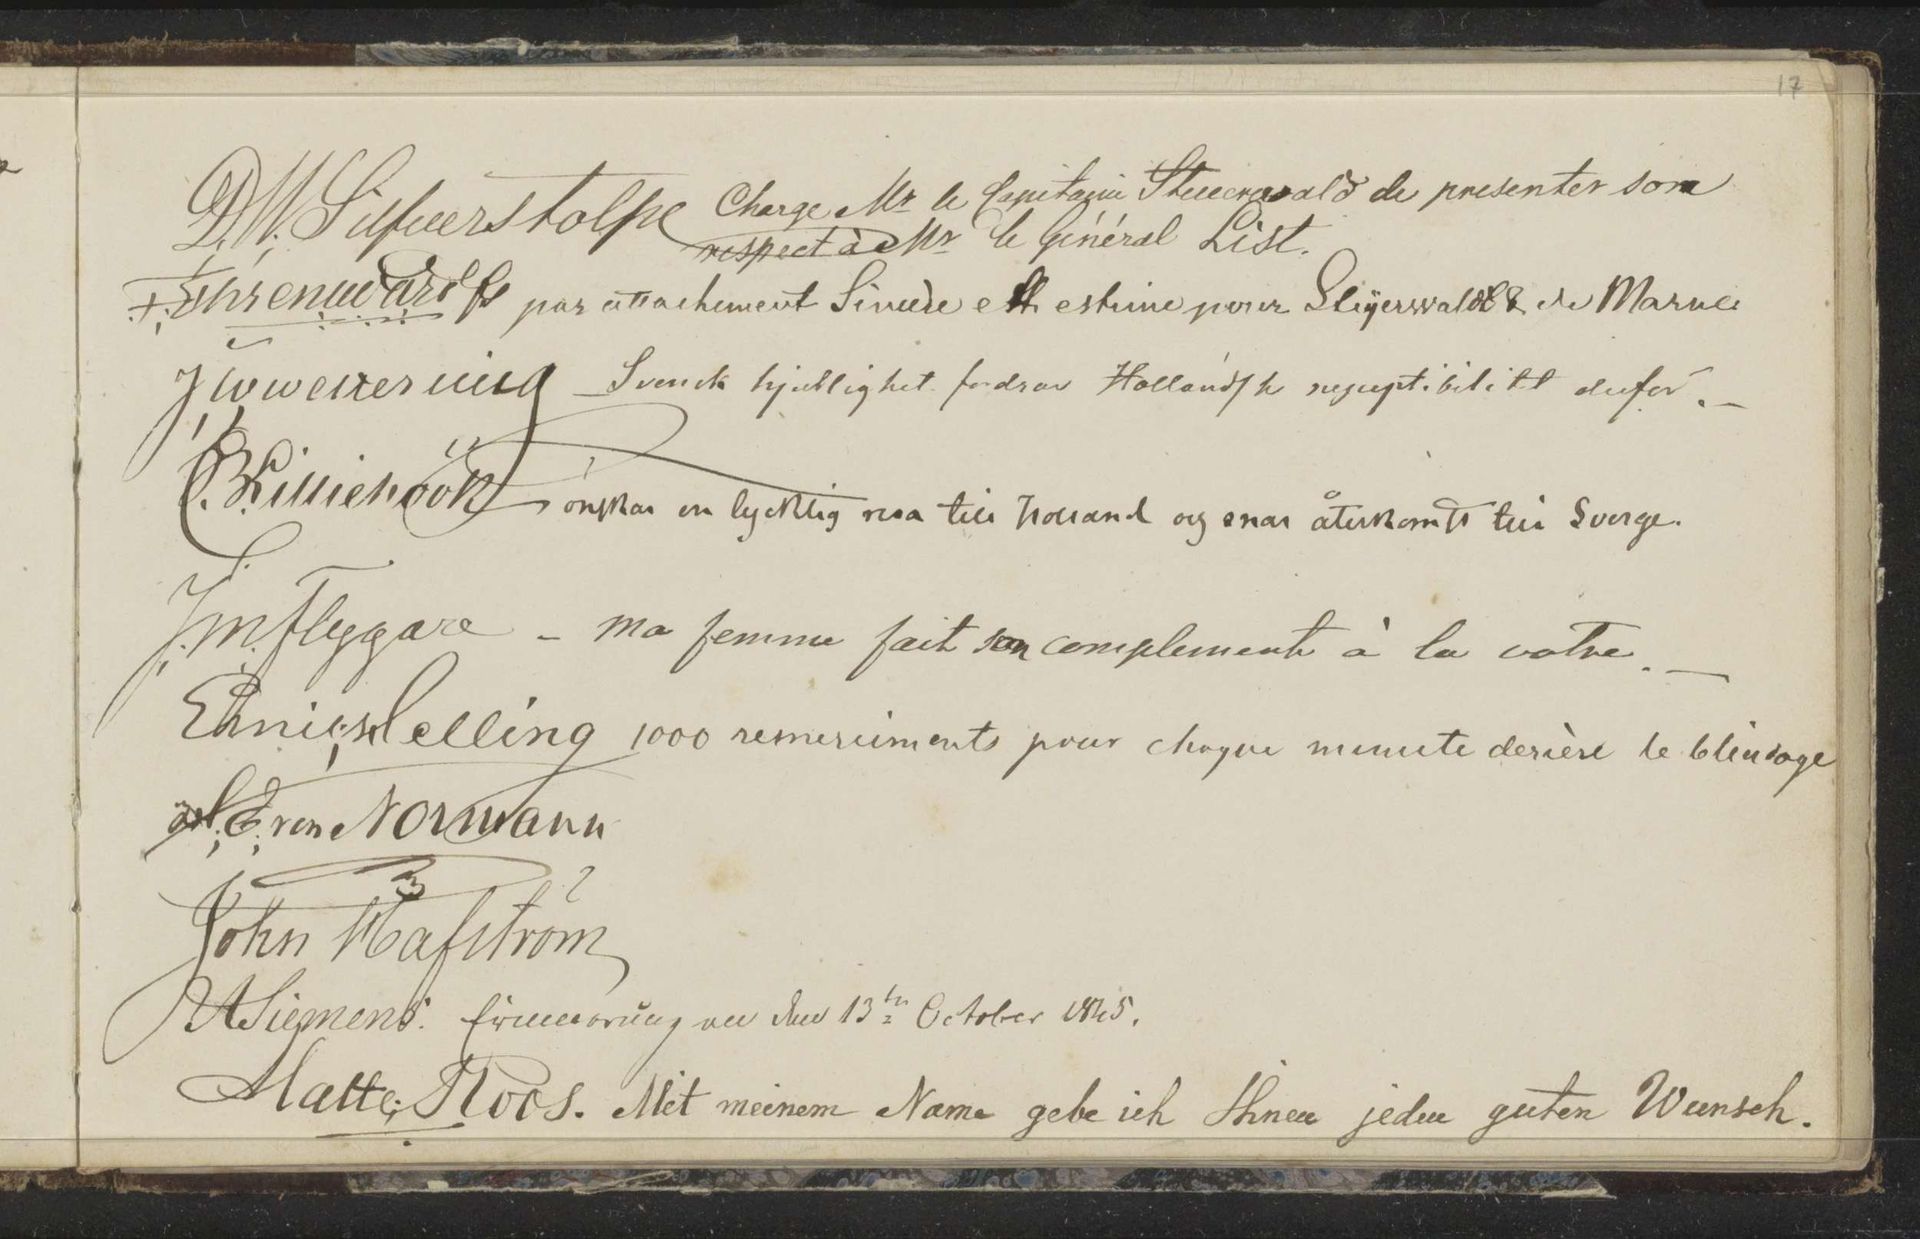 17
D. W. Silfverstolpe Charge Mr le Capitaine Steuerwald de presenter som
respect à Mr le Général List.
par attachement Sincère et estime pour Steyerwaldt & de Marne
Svensk hjertlighet fordrar Holländsk derför. —
C. B. Lilliehöök önskar en lycklig resa till Holland og snar återkomst till Sverge.
J. M. Flygare — ma femme fait son complement à la votre. —
Selling 1000 remerciments pour chaque minute derière le blindage
von Normann
John Hafström
Siemens. Erinnerung an den 13ten October 1845.
Malte Roos. Mit meinem Name gebe ich Ihnen jeden guten Wunsch.